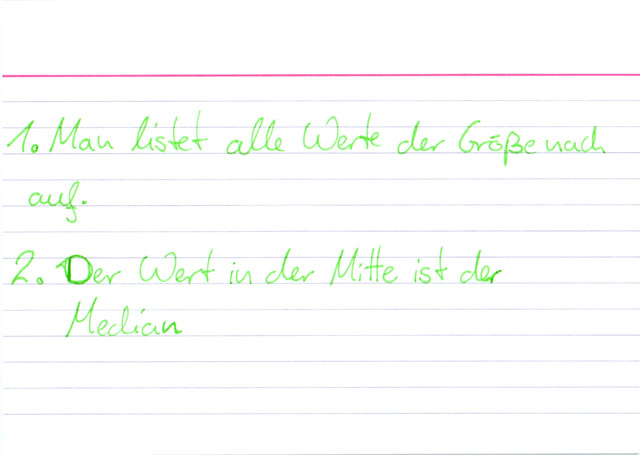 1. Man listet alle Werte der Größe nach
auf.
2. Der Wert in der Mitte ist der
Median